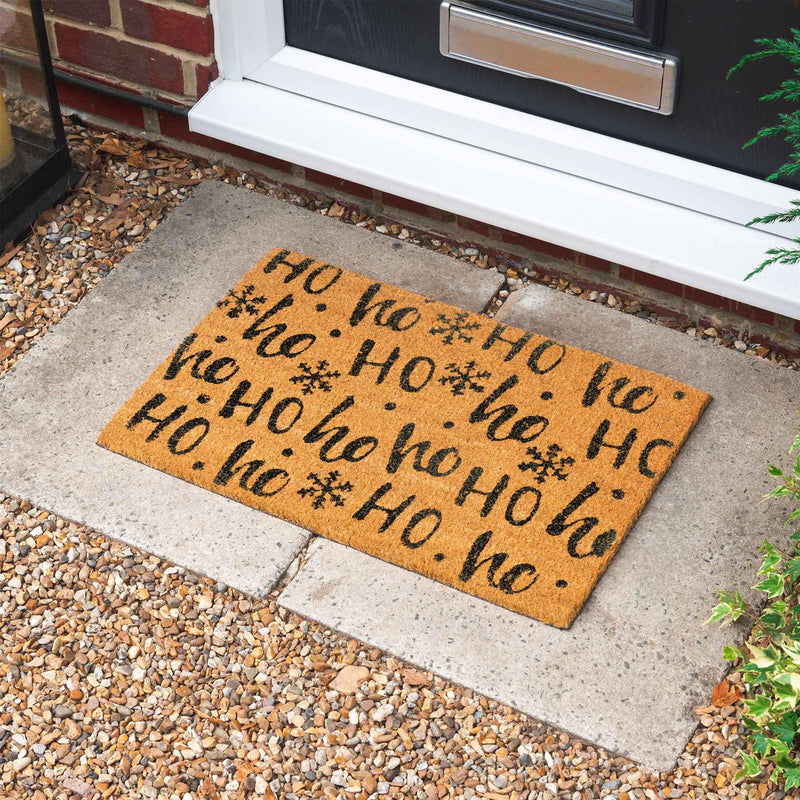 HO. ho HO ho.
ho. HO ho. HO
ho. HO ho. ho. HO ho.
HO. ho. HO. ho.